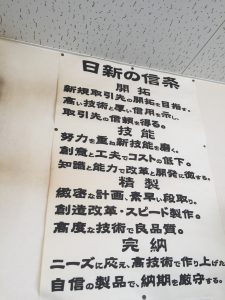 日新の信条
開拓
新規取引先の開拓を目指す。
高い技術と厚い信用を示し
取引先の信頼を得る。
技能
努力を重ね新技能を磨く。
創意と工夫でコストの低下。
知識と能力で改革と開発に徹する。
精製
緻密な計画、素早い段取り。
創造改革・スピード製作。
高度な技術で良品質。
完納
ニーズに応え、高技術で作り上げた
自信の製品で、納期を厳守する。